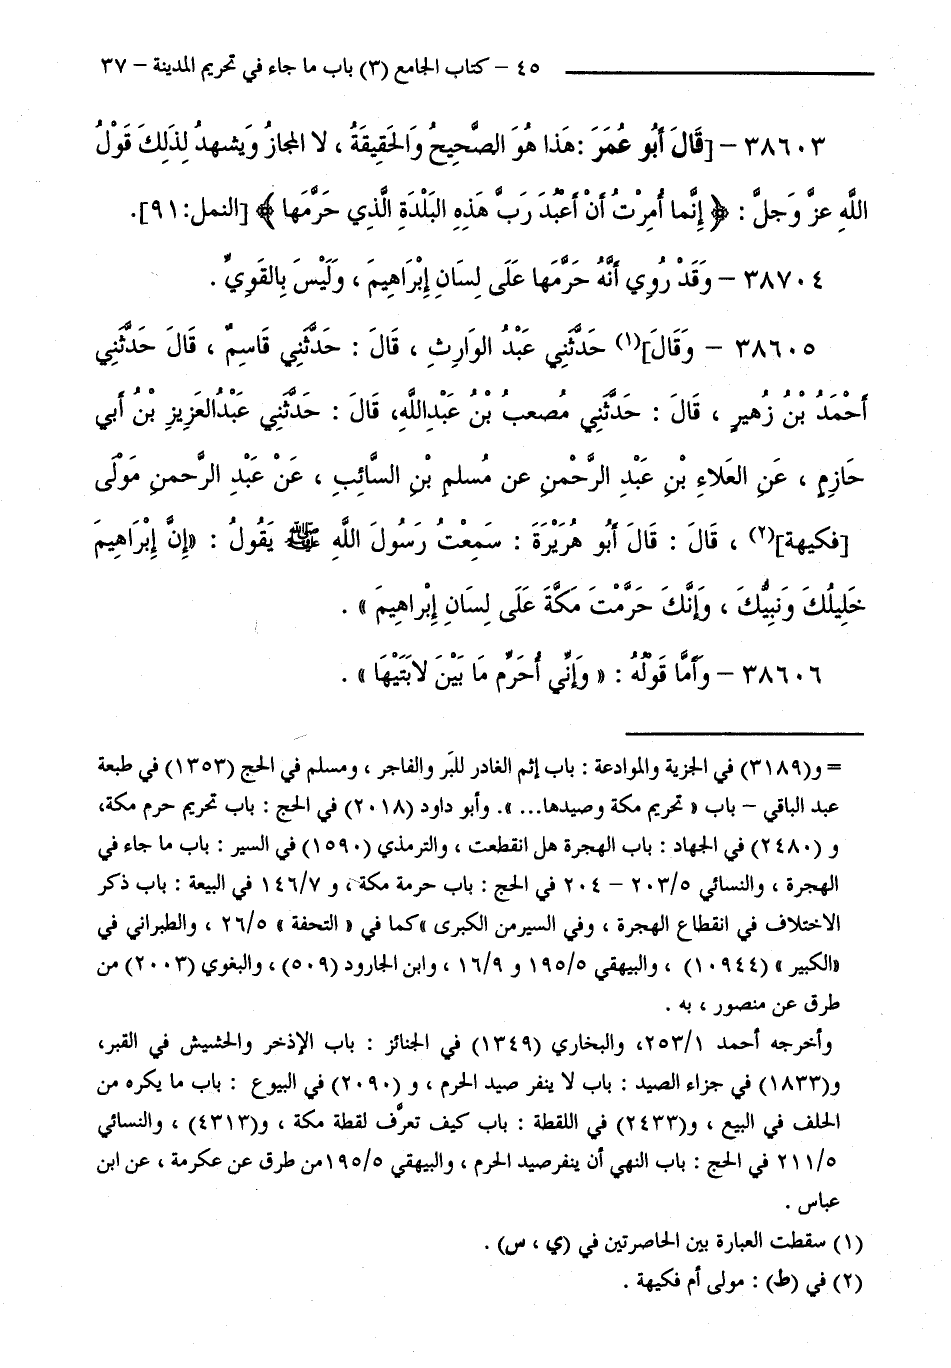 ٤٥ – كتاب الجامع (٣) باب ما جاء في تحريم المدينة – ٣٧
٣٨٦٠٣ – [قَالَ أَبُو عُمَرَ :هَذا هُوَ الصَّحِيحُ وَالحَقِيقَةُ ، لا المجازُ وَيَشهدُ لِذَلِكَ قَوْلُ
اللَّهِ عزَّ وَجلَّ : ﴿ إِنَّما أُمِرْتُ أَنْ أَعْبُدَ رَبَّ هَذِهِ البَلْدَةِ الَّذِي حَرَّمَها ﴾ [النمل:٩١].
٣٨٧٠٤ – وَقَدْ رُوِي أَنَّهُ حَرَّمَها عَلَى لِسَانِ إِبْرَاهِيمَ ، وَلَيْسَ بِالقَوِيِّ .
٣٨٦٠٥ – وَقَالَ](١) حَدَّثَنِي عَبْدُ الوَارِثِ ، قَالَ : حَدَّثَنِي قَاسِمٌ ، قَالَ حَدَّثَنِي
أَحْمَدُ بْنُ زُهَيرٍ ، قَالَ : حَدَّثَنِي مُصعبُ بْنُ عَبْدِاللَّهِ، قَالَ : حَدَّثَنِي عَبْدُالعَزِيزِ بْنُ أَبي
حَازِمٍ ، عَنِ العَلاءِ بْنِ عَبْدِ الرَّحْمنِ عن مُسلمِ بْنِ السَّائِبِ ، عَنْ عَبْدِ الرَّحمنِ مَوْلَى
[فكيهة](٢) ، قَالَ : قَالَ أَبُو هُرَيْرَةَ : سَمِعْتُ رَسُولَ اللَّهِ ﷺ يَقُولُ : «إِنَّ إِبْرَاهِيمَ
خَلِيلُكَ وَنَبِيُّكَ ، وَإِنَّكَ حَرَّمْتَ مَكَّةَ عَلَى لِسَانِ إِبْراهِيمَ » .
٣٨٦٠٦ – وَأَمَّا قَوْلُهُ : « وَإِنِّي أُحَرِّمُ مَا بَيْنَ لابَتَيْهَا » .
= و(٣١٨٩) في الجزية والموادعة : باب إثم الغادر للبَر والفاجر ، ومسلم في الحج (١٣٥٣) في طبعة
عبد الباقي – باب « تحريم مكة وصيدها... ». وأبو داود (٢٠١٨) في الحج : باب تحريم حرم مكة،
و (٢٤٨٠) في الجهاد : باب الهجرة هل انقطعت ، والترمذي (١٥٩٠) في السير : باب ما جاء في
الهجرة ، والنسائي ٢٠٣/٥ – ٢٠٤ في الحج : باب حرمة مكة، و ١٤٦/٧ في البيعة : باب ذكر
الاختلاف في انقطاع الهجرة ، وفي السيرمن الكبرى »كما في « التحفة » ٢٦/٥ ، والطبراني في
«الكبير » (١٠٩٤٤) ، والبيهقي ١٩٥/٥ و ١٦/٩ ، وابن الجارود (٥٠٩) ، والبغوي (٢٠٠٣) من
طرق عن منصور ، به .
وأخرجه أحمد ٢٥٣/١، والبخاري (١٣٤٩) في الجنائز : باب الإذخر والحشيش في القبر،
و(١٨٣٣) في جزاء الصيد : باب لا ينفر صيد الحرم ، و (٢٠٩٠) في البيوع : باب ما يكره من
الحلف في البيع ، و(٢٤٣٣) في اللقطة : باب كيف تعرَّف لقطة مكة ، و(٤٣١٣) ، والنسائي
٢١١/٥ في الحج : باب النهي أن ينفرصيد الحرم ، والبيهقي ١٩٥/٥من طرق عن عكرمة ، عن ابن
عباس .
(١) سقطت العبارة بين الحاصرتين في (ي ، س) .
(٢) في (ط) : مولى أم فكيهة .